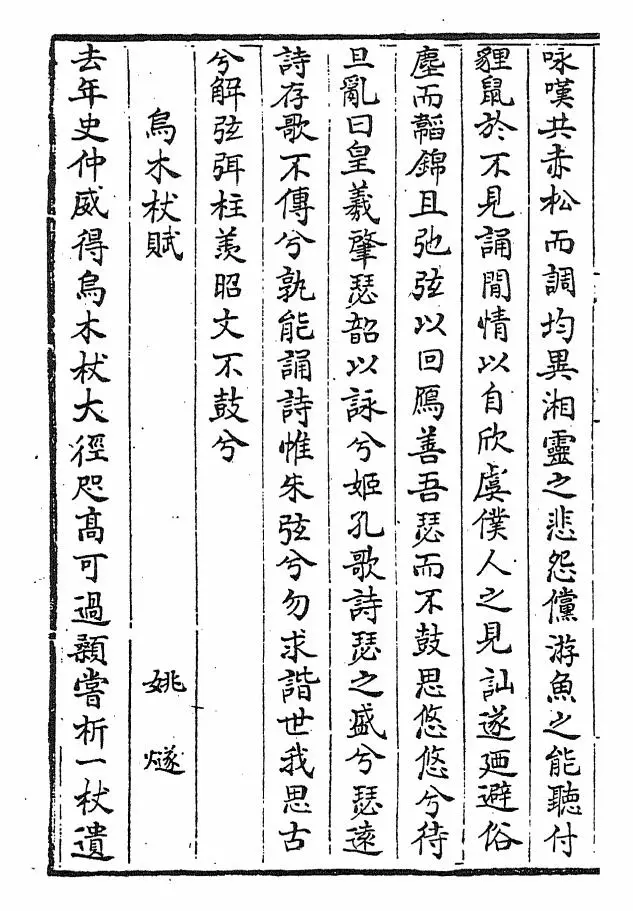 咏嘆共赤松而調均異湘靈之悲怨儻游魚之能聽付
貍鼠於不見誦閒情以自欣虞僕人之見訕遂迺避俗
塵而韜錦且弛弦以回鴈善吾瑟而不鼓思悠悠兮待
旦亂曰皇羲肇瑟韶以詠兮姬孔歌詩瑟之盛兮瑟遠
詩存歌不傳兮孰能誦詩惟朱弦兮勿求諧世我思古
兮解弦弭柱羨昭文不鼓兮
烏木杖賦 姚燧
去年史仲威得烏木杖大徑咫高可過顙嘗析一杖遺